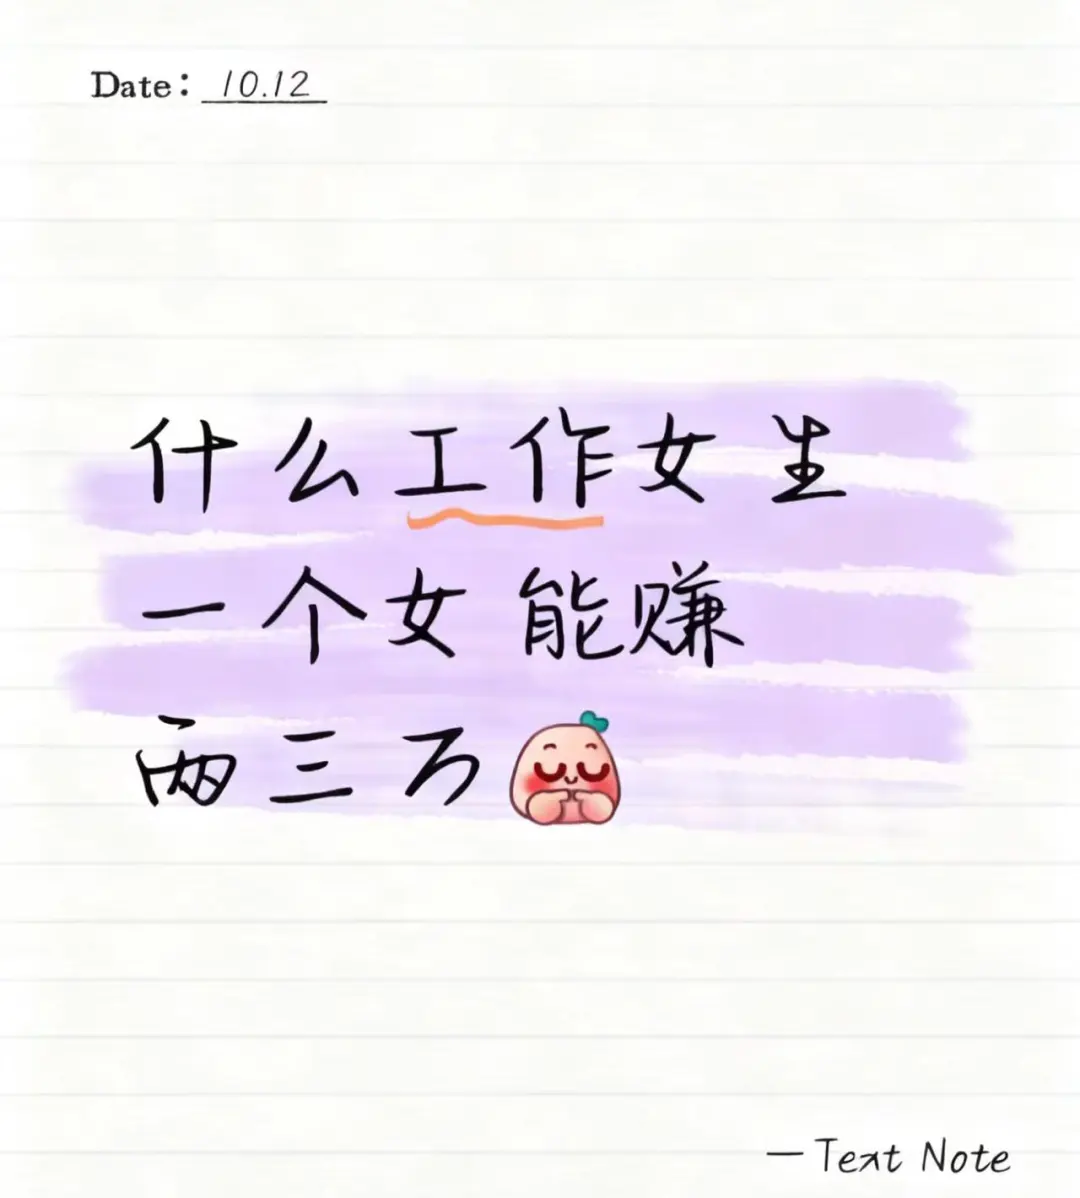 Date: 10.12
什么工作女生
一个女 能赚
两三万
— Text Note